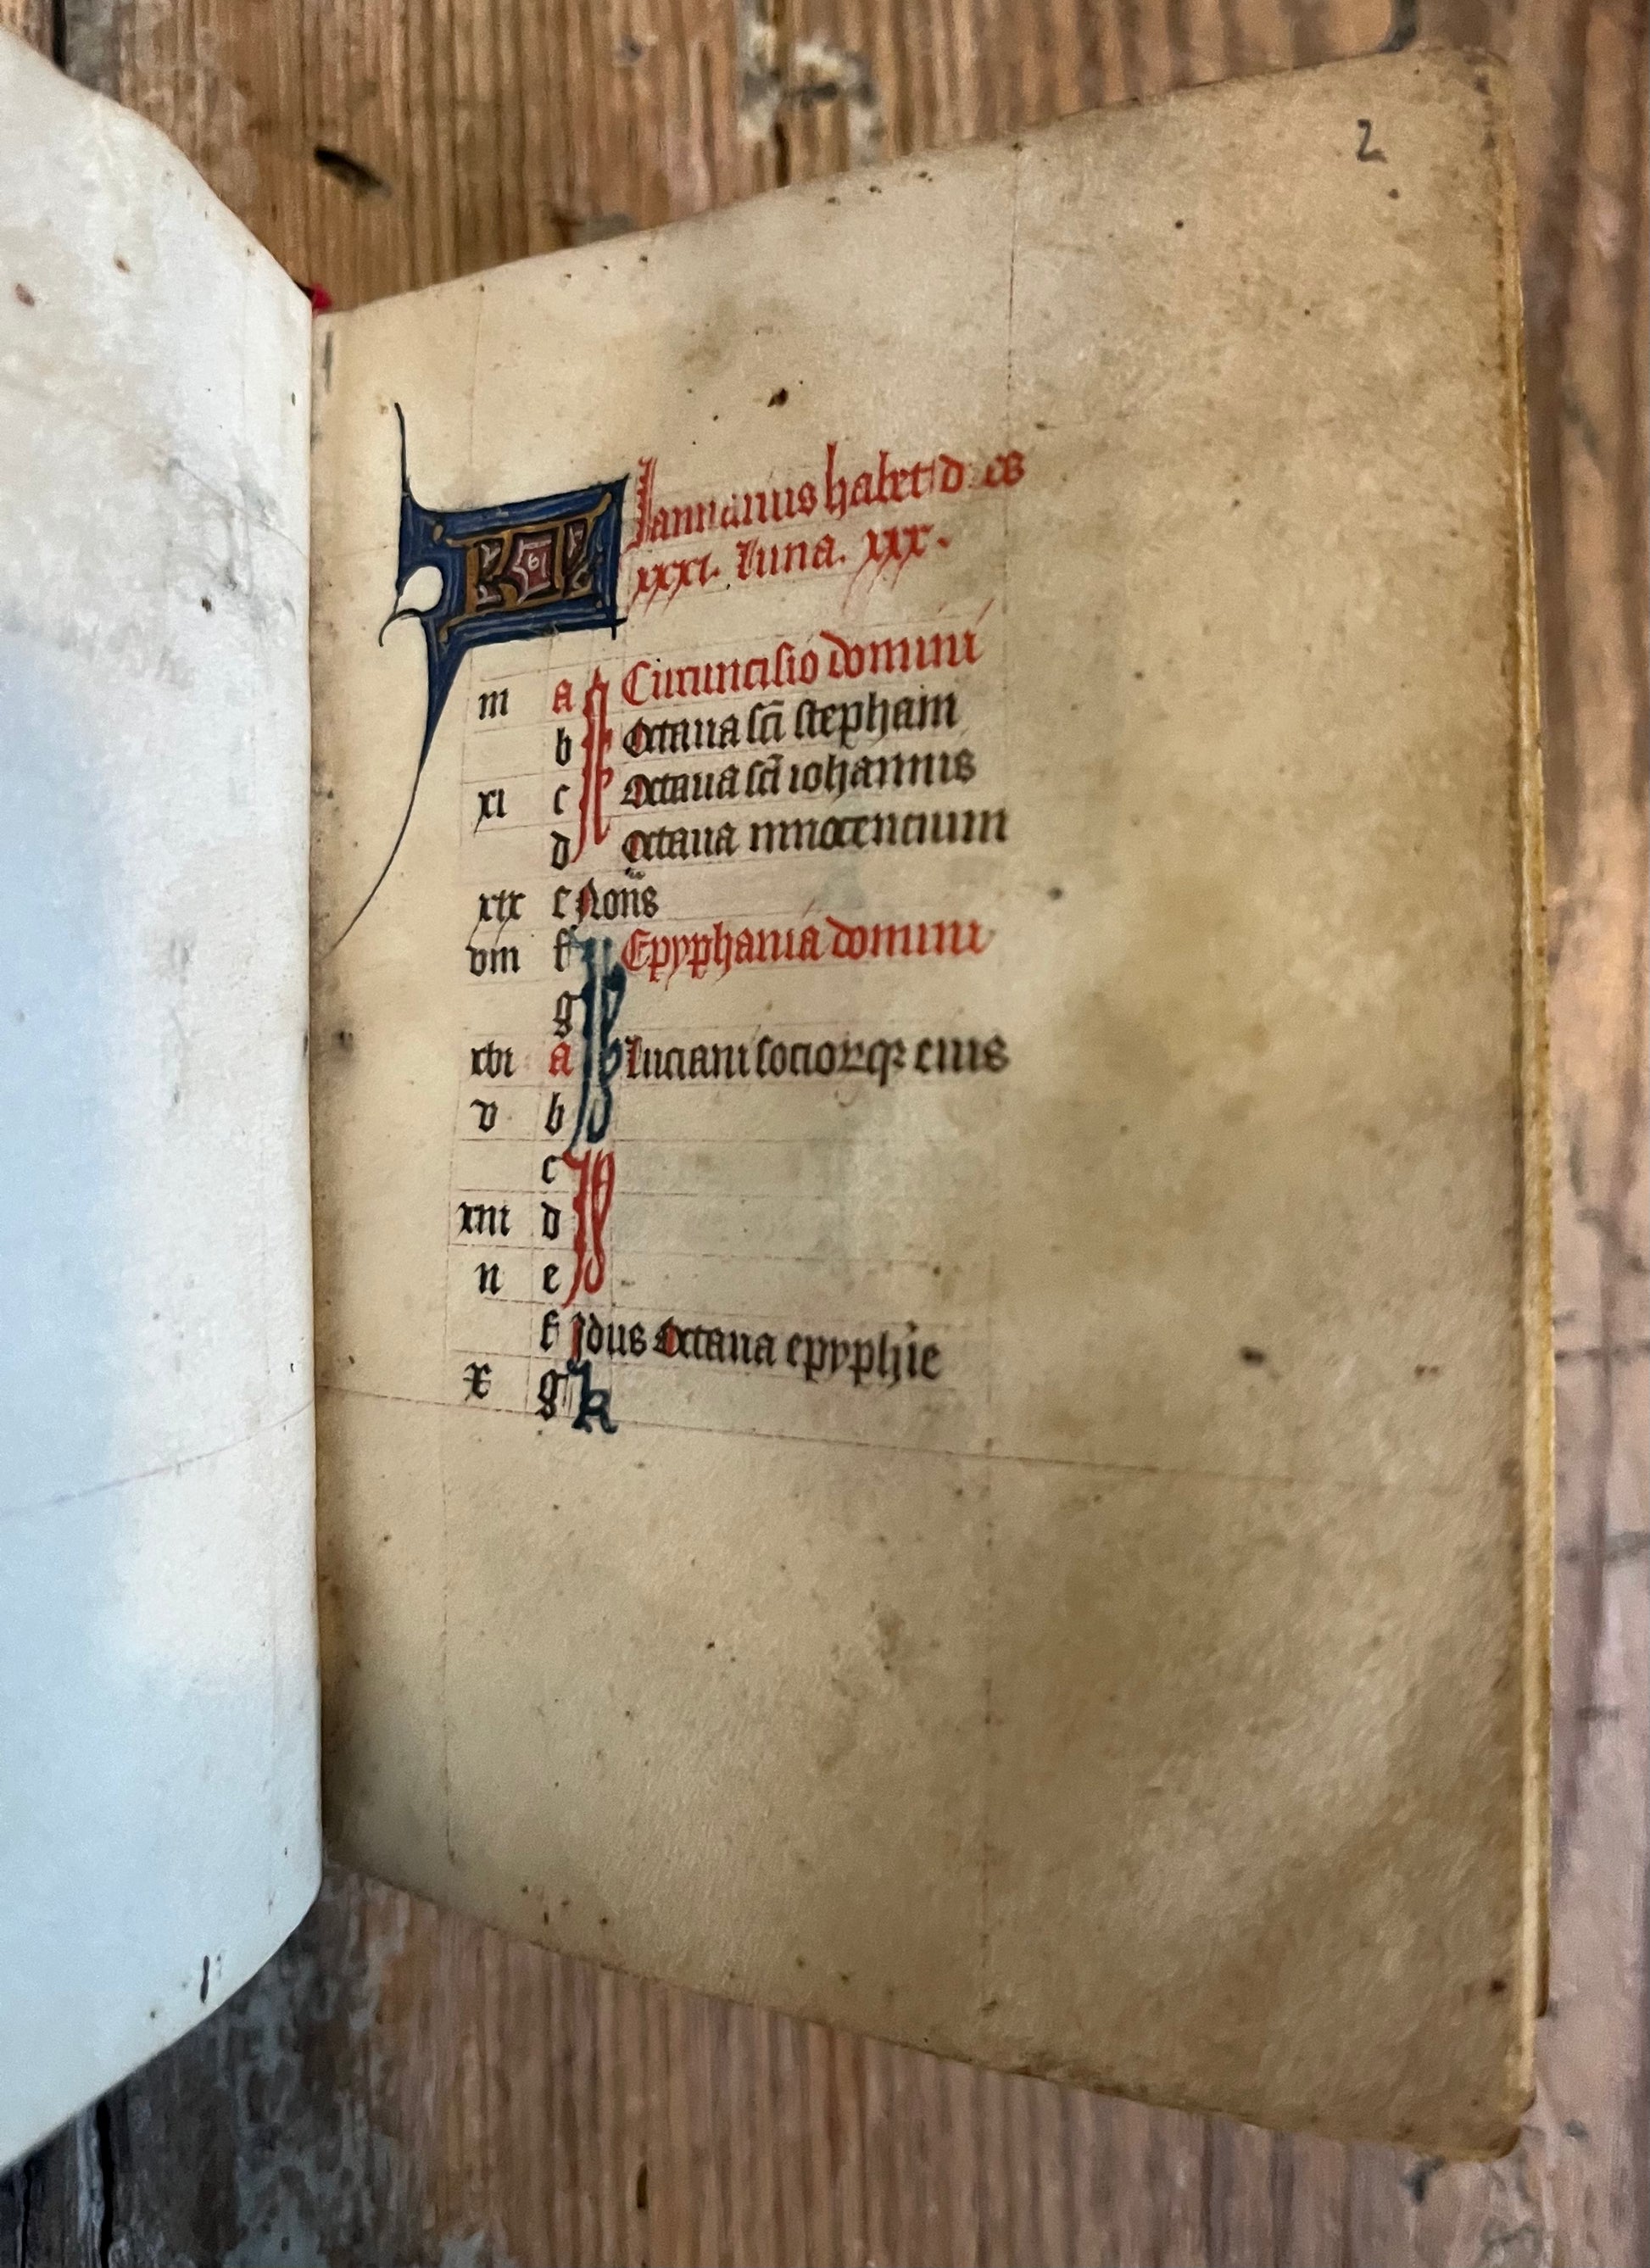 2
KL
Januarius habet dies
xxxi. luna. xxx.
iii a Circuncisio domini
b Octaua sci stephani
xi c Octaua sci iohannis
d Octaua innocencium
xix e Nonis
viii f Epyphania domini
g
xvi a luciani sociorumque eius
v b
c
xiii d
ii e
f Idus Octaua epyphie
x g k